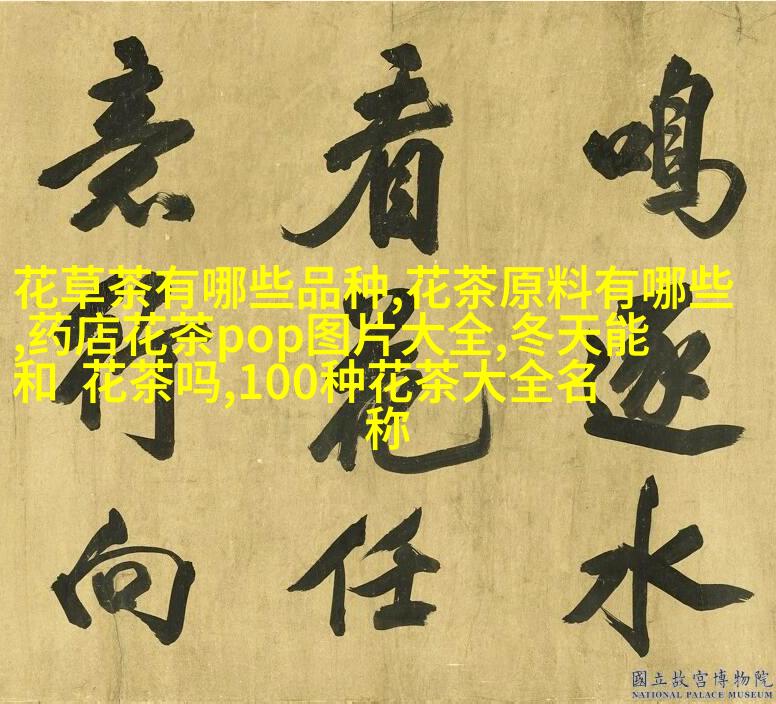 鳴逐水
看花任
意行向
花草茶有哪些品种,花茶原料有哪些
,药店花茶pop图片大全,冬天能
和 花茶吗,100种花茶大全名
称
國立故宮博物院
NATIONAL PALACE MUSEUM